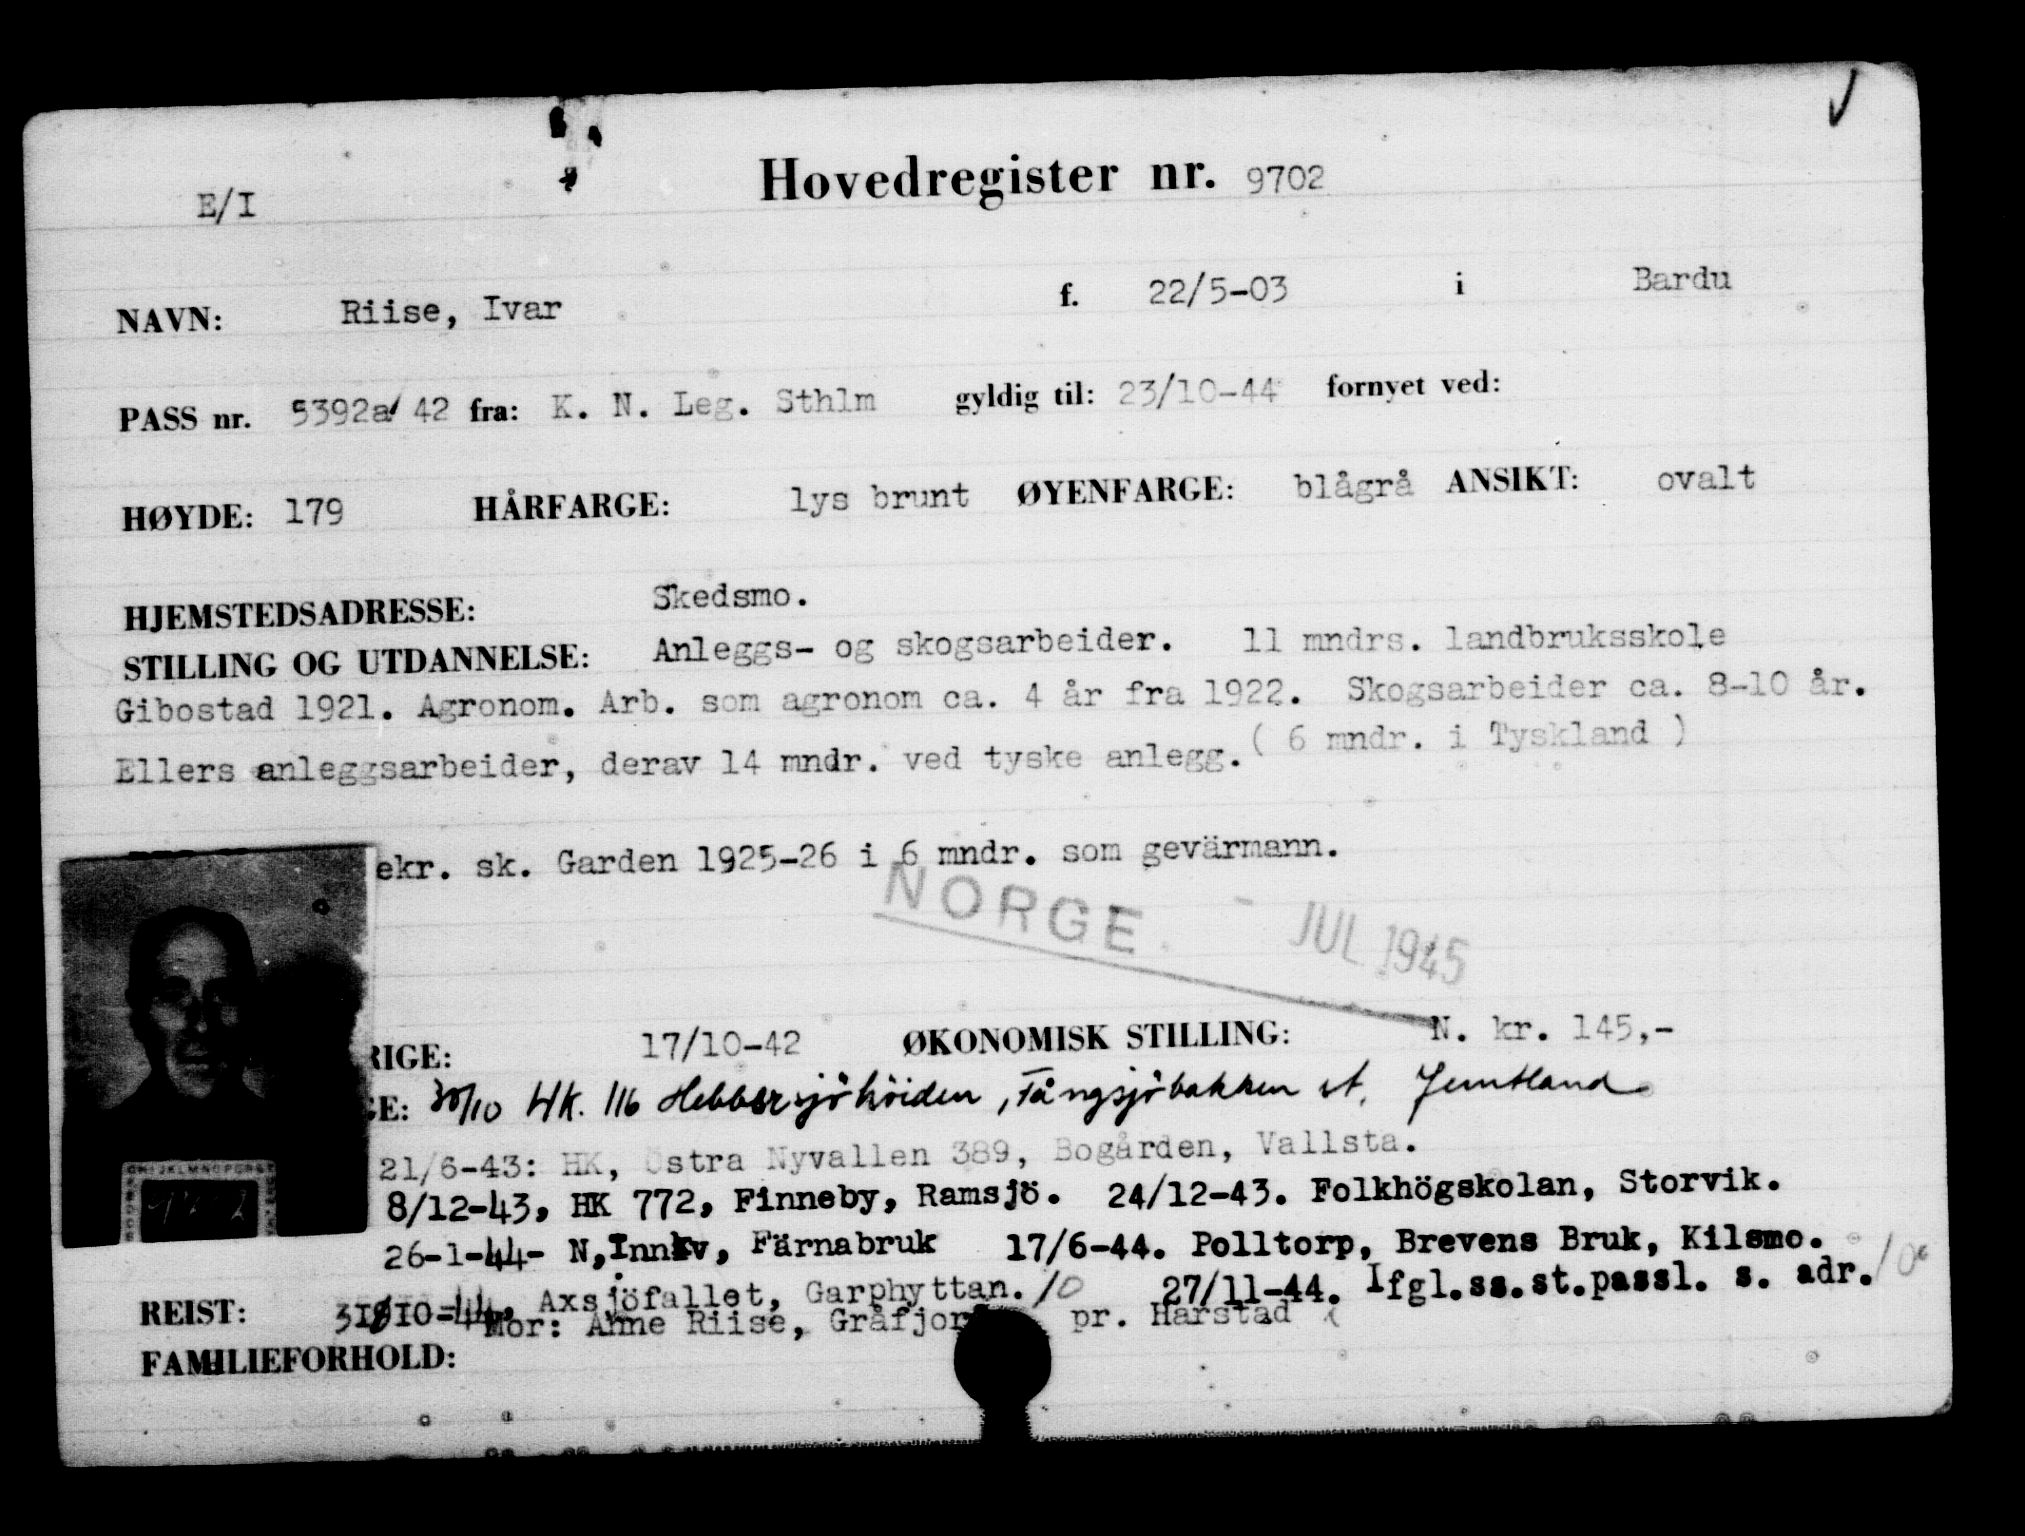 E/I
Hovedregister nr. 9702
NAVN: Riise, Ivar f. 22/5-03 i Bardu
PASS nr. 5392a/42 fra: K. N. Leg. Sthlm gyldig til: 23/10-44 fornyet ved:
HØYDE: 179 HÅRFARGE: lys brunt ØYENFARGE: blågrå ANSIKT: ovalt
HJEMSTEDSADRESSE: Skedsmo.
STILLING OG UTDANNELSE: Anleggs- og skogsarbeider. 11 mndrs. landbruksskole
Gibostad 1921. Agronom. Arb. som agronom ca. 4 år fra 1922. Skogsarbeider ca. 8-10 år.
Ellers anleggsarbeider, derav 14 mndr. ved tyske anlegg. ( 6 mndr. i Tyskland )
ekr. sk. Garden 1925-26 i 6 mndr. som gevärmann.
NORGE - JUL 1945
RIGE: 17/10-42 ØKONOMISK STILLING: N. kr. 145,-
GE: 30/10 HK. 116 Hebbersjöhöiden, Tångsjöbakken st. Jemtland
21/6-43: HK, Östra Nyvallen 389, Bogården, Vallsta.
8/12-43, HK 772, Finneby, Ramsjö. 24/12-43. Folkhögskolan, Storvik.
26-1-44- N,Innkv, Färnabruk 17/6-44. Polltorp, Brevens Bruk, Kilsmo.
31/10-44, Axsjöfallet, Garphyttan. /0 27/11-44. Ifgl.ss.st.passl. s. adr.
REIST: Mor: Anne Riise, Gråfjor pr. Harstad
FAMILIEFORHOLD: